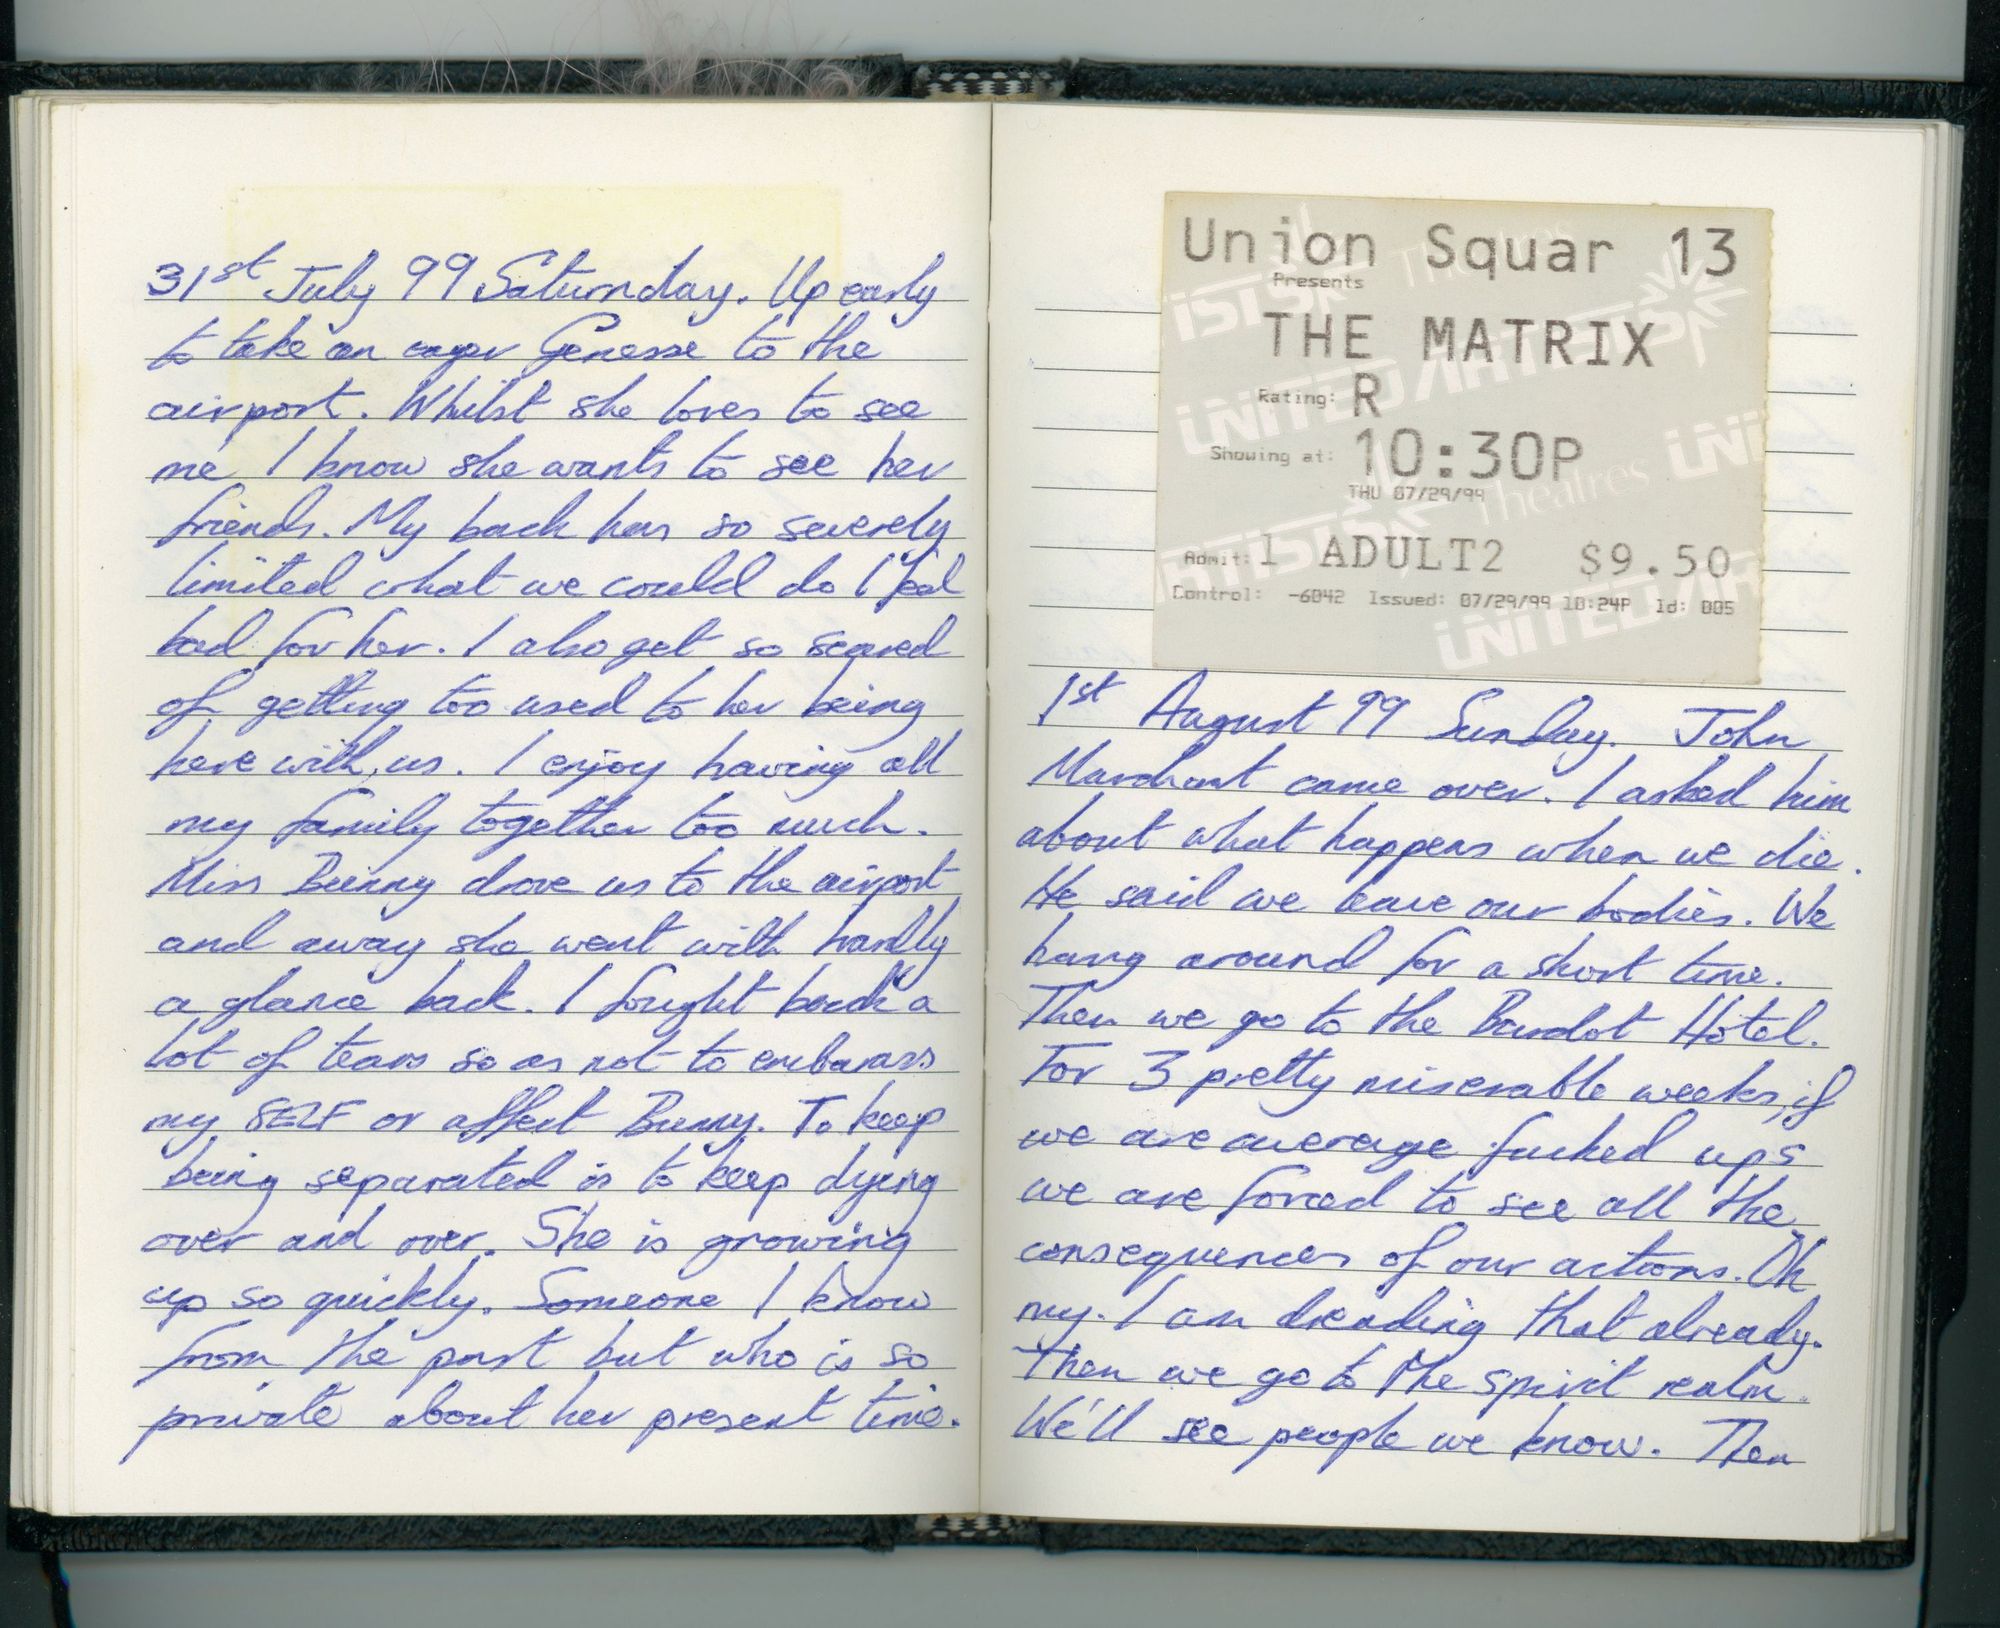 31st July 99 Saturday. Up early
to take an eager Genesse to the
airport. Whilst she loves to see
me I know she wants to see her
friends. My back has so severely
limited what we could do I feel
bad for her. I also get so scared
of getting too used to her being
here with us. I enjoy having all
my family together too much.
Miss Bunny drove us to the airport
and away she went with hardly
a glance back. I fought back a
lot of tears so as not to embarass
my SELF or affect Bunny. To keep
being separated is to keep dying
over and over. She is growing
up so quickly. Someone I know
from the past but who is so
private about her present time.
Union Squar 13
Presents
THE MATRIX
Rating: R
Showing at: 10:30P
THU 07/29/99
Admit: 1 ADULT2 $9.50
Control: -6042 Issued: 07/29/99 10:24P Id: 005
UNITED ARTISTS Theatres
1st August 99 Sunday. John
Marchant came over. I asked him
about what happens when we die.
He said we leave our bodies. We
hang around for a short time.
Then we go to the Bardot Hotel.
For 3 pretty miserable weeks, if
we are average fucked ups
we are forced to see all the
consequences of our actions. Oh
my. I am dreading that already.
Then we go to the spirit realm.
We'll see people we know. Then